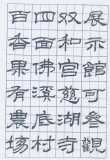 展示館可參觀
双和宮慈湖寺
四面佛溪底村
百香果有農場